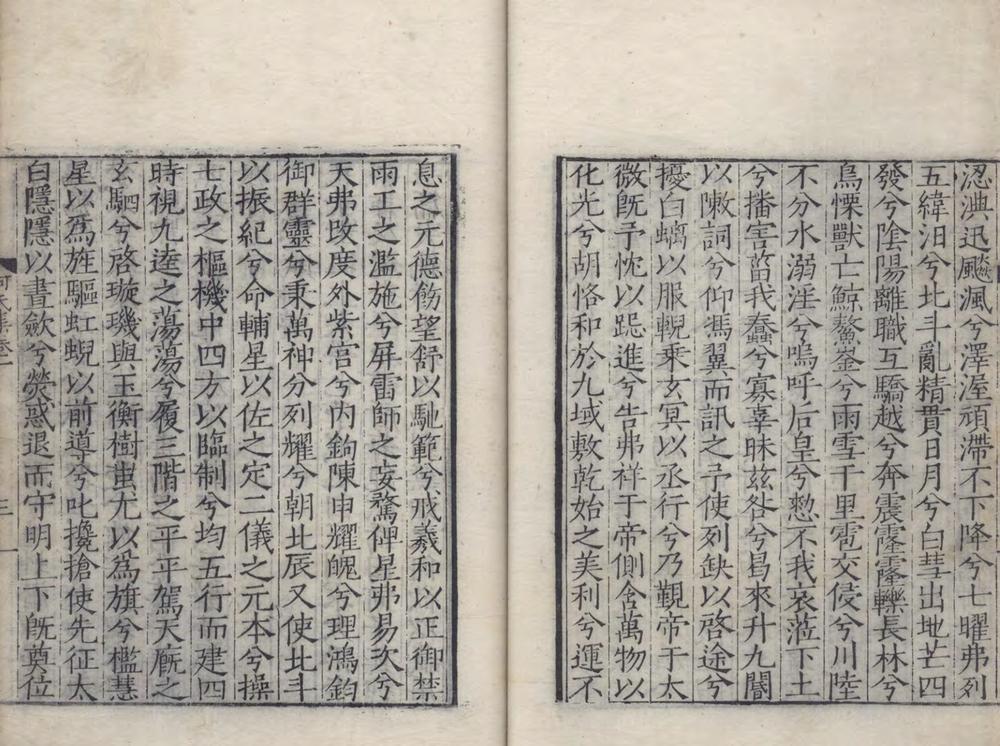 涊淟迅飈渢兮澤溼頑滯不下降兮七曜弗列
五緯汨兮北斗亂精貫日月兮白彗出地芒四
發兮陰陽離職互驕越兮奔震霳霳轢長林兮
鳥慄獸亡鯨鰲崟兮雨雪千里雹交侵兮川陸
不分水溺淫兮嗚呼后皇兮愸不我哀蒞下土
兮播害菑我蠢兮寡辜昧茲咎兮曷來升九閽
以敶詞兮仰馮翼而訊之予使列缺以啓途兮
擾白螭以服輗乘玄冥以丞行兮乃觀帝于太
微旣予忱以跽進兮告弗祥于帝側含萬物以
化光兮胡恪和於九域敷乾始之美利兮運不
息之元德飭望舒以馳範兮戒羲和以正御禁
雨工之濫施兮屏雷師之妄騖俾星弗易次兮
天弗改度外紫宫兮内鉤陳申耀魄兮理鴻鈞
御群靈兮秉萬神分列耀兮朝北辰又使北斗
以振紀兮命輔星以佐之定二儀之元本兮操
七政之樞機中四方以臨制兮均五行而建四
時視九逵之蕩蕩兮履三階之平平駕天廄之
玄駟兮啓璇璣與玉衡樹蚩尤以爲旗兮檻慧
星以爲旌驅虹蜺以前導兮叱攙搶使先征太
白隱隱以晝歛兮熒惑退而守明上下旣奠位